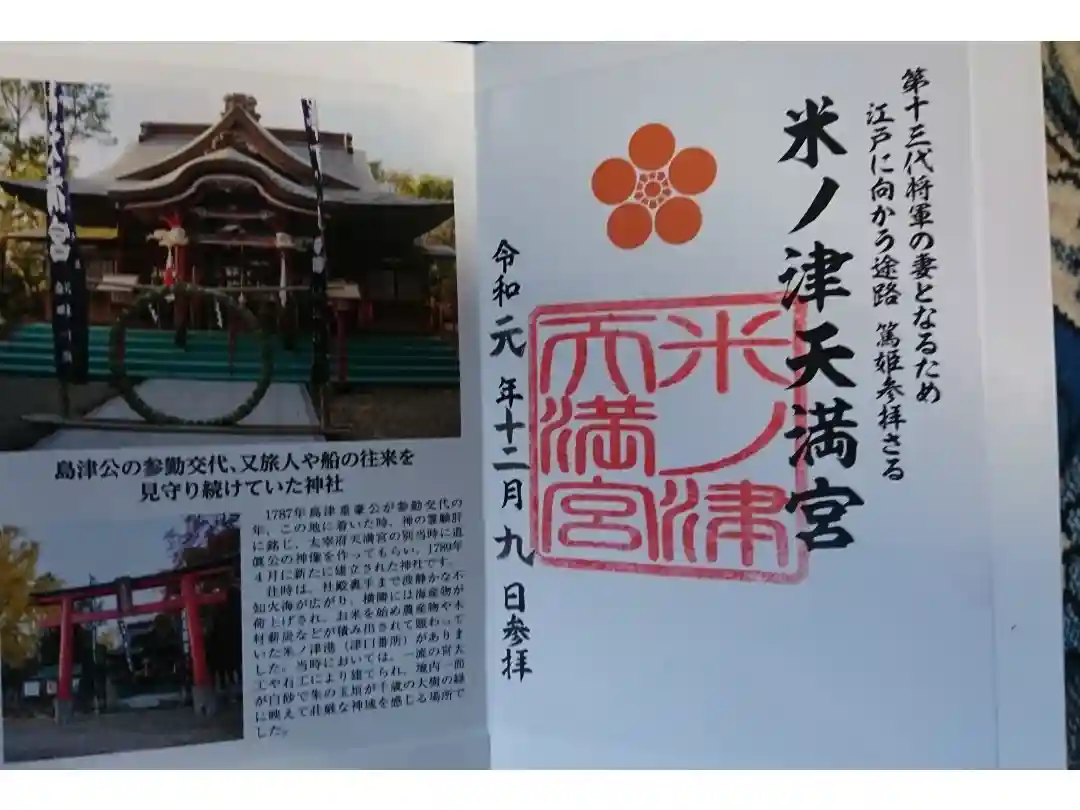 島津公の参勤交代、又旅人や船の往来を
見守り続けていた神社
1787年島津重豪公が参勤交代の
年、この地に着いた時、神の霊験肝
に銘じ、太宰府天満宮の別当時に道
眞公の神像を作ってもらい、1789年
4月に新たに建立された神社です。
往時は、社殿裏手まで波静かな不
知火海が広がり、横隣には海産物が
荷上げされ、お米を始め農産物や木
材薪炭などが積み出されて賑わって
いた米ノ津港(津口番所)がありま
した。当時においては、一流の宮大
工や石工により建てられ、地内一面
が白砂で朱の玉垣が千歳の大樹の緑
に映えて荘厳な神域を感じる場所で
した。
第十三代将軍の妻となるため
江戸に向かう途路 篤姫参拝さる
米ノ津天満宮
米ノ津
天満宮
令和元年十二月九日参拝